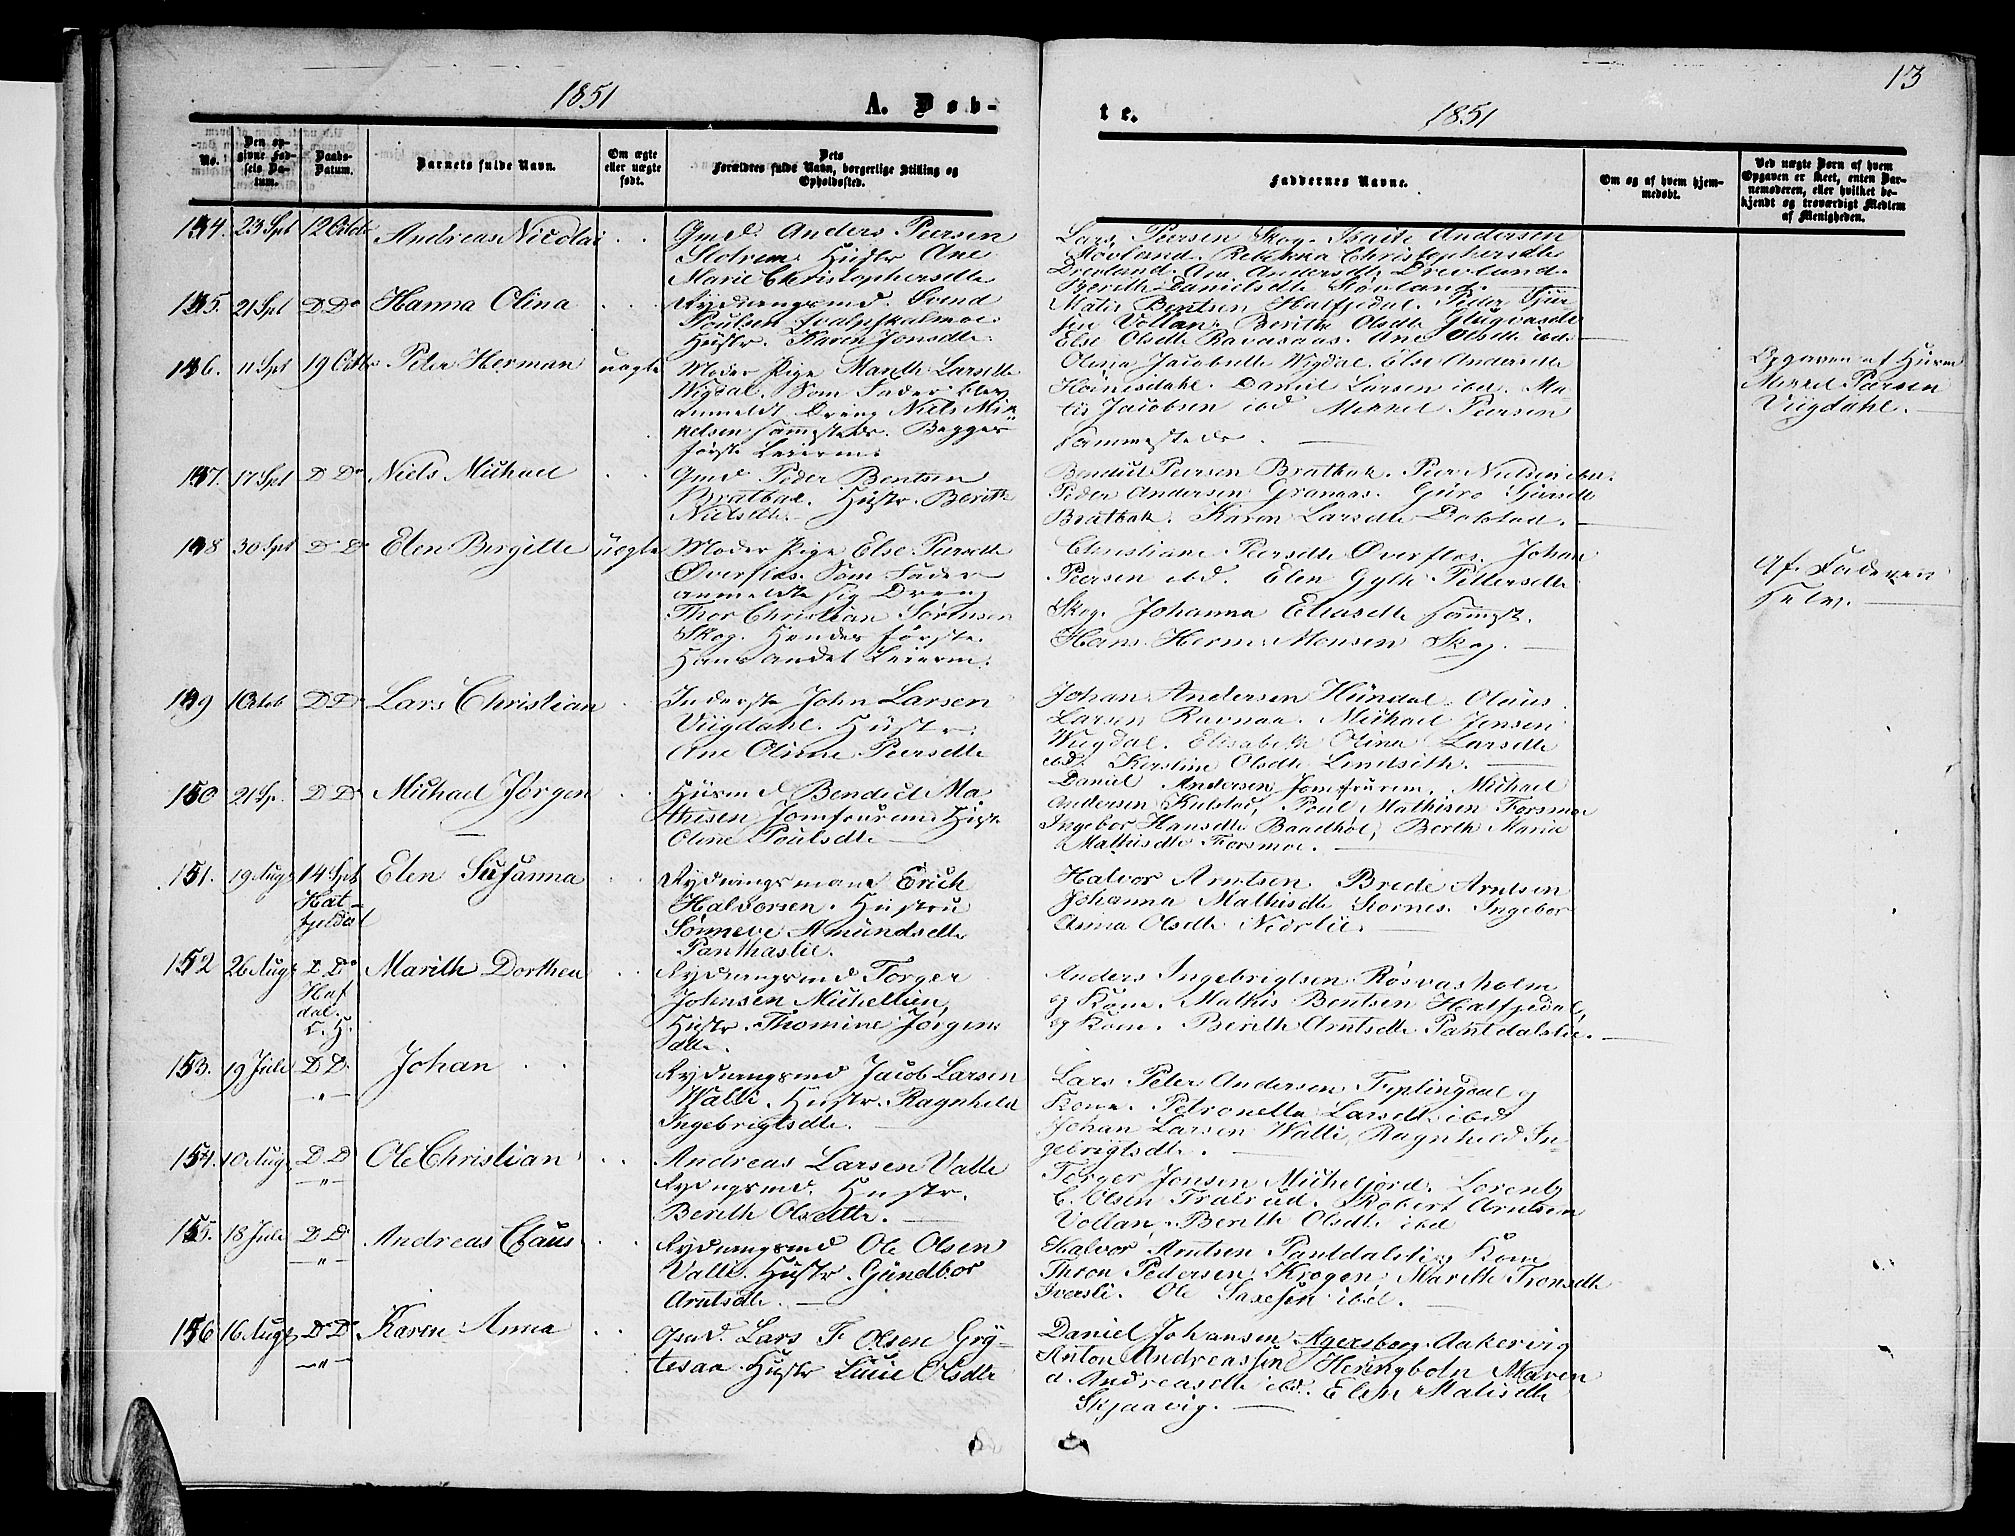 1851
A. Døb-
te.
1851
13
No.
Den op-
givne Fød-
sels Da-
tum.
Daabs-
Datum.
Barnets fulde Navn.
Om ægte
eller uægte
født.
Dets
Forældres fulde Navn, borgerlige Stilling og
Opholdssted.
Faddernes Navne.
Om og af hvem hjem-
medøbt.
Ved uægte Børn af hvem
Opgaven er skeet, enten Bar-
nemoderen, eller hvilket be-
kjendt og troværdigt Medlem
af Menigheden.
23 Spt 12 Octob Andreas Nicolai
Gmd. Anders Peersen
Hustr Ane
Marie Christophersdtr
Lars Peersen Skog. Andersen
Støvland. Rebekka Christophersdtr
Drevland. Ane Andersdtr Drevland.
Berith Danielsdtr Støvland
21 Spt D Do Hanna Olina
Rydningsmd. Svend
Poulsen
Hustr. Karen Jonsdtr.
Matis Bentsen Hatfjeldal. Peder
Vollan. Berith Olsdtr
Else Olsdtr Ravasaas. Ane Olsdtr ibd.
11 Spt 19 Octbr Peter Herman uægte
Moder Pige Marith Larsdtr
Vigdal. Som Fader blev
anmeldt Dreng Niels Mik-
kelsen sammesteds. Begges
første Leierm.
Olina Jacobsdtr Vigdal. Else Andersdtr
Daniel Larsen ibd. Ma-
tis Jacobsen ibd Mikkel Peersen
sammesteds.
Opgaven af Husm
Mikkel Peersen
Viigdahl.
17 Spt D Do Niels Michael
Gmd Peder Bentsen
Bratbak. Hustr. Berith
Nielsdtr.
Bendict Peersen Bratbak. Peer Nielsen ibd.
Peder Andersen Granaas. Guro
Bratbak. Karen Larsdtr Dolstad.
30 Spt D Do Elen Bergitte uægte
Moder Pige Else Peersdtr
Øverflos. Som Fader
anmeldte sig Dreng
Thor Christian Sørensen
Skog. Hendes første
Hans andet Leierm.
Christiane Peersdtr Øverflos. Johan
Peersen ibd. Elen Gyth Pettersdtr
Skog. Johanna Eliasdtr sammest.
Hans Herm. Monsen Skog.
Af Faderen
selv.
1 Octob D Do Lars Christian
Inderste John Larsen
Viigdahl. Hustr.
Ane Oline Peersdtr
Johan Andersen Hundal. Olaus
Larsen Ravnaa. Michael Jensen
Viigdal. Elisabeth Olina Larsdtr
ibd. Kerstine Olsdtr Lindseth.
150 21 Sp. D Do Michael Jørgen
Husmd Bendict Ma-
thisen Jomfrurem Hust
Oline Poulsdtr
Daniel Andersen Jomfrurem. Michael
Andersen Kulstad, Poul Mathisen Forsmo
Ingebor Hansdtr Baadhol, Berth Maria
Mathisdtr Forsmoe.
151. 19 Aug 14 Spt Elen Susanna
Hat-
fjeldal
Rydningsmand Erich
Halvorsen. Hustru
Sønneve Amundsdtr
Panthaslie.
Halvor Arntsen Brede Arntsen
Johanna Mathisdtr Stornes. Ingebor
Anna Olsdtr Nedrlie.
152 26 Aug D Do Marith Dorthea
Hat
dal.
C. H.
Rydningsmd Torger
Johnsen Mikellien,
Hustr. Thomine Jørgens
dtr.
Anders Ingebrigtsen Røsvasholm
og Kone. Mathis Bentsen Hatfjedal,
og Kone. Berith Arntsdtr Pantdalslie.
153. 19 Juli D D. Johan
-"-
Rydningsmd Jacob Larsen
Walli. Hustr. Ragnhild
Ingebrigtsdtr.
Lars Peter Andersen Tiplingdal og
Kone. Petronella Larsdtr ibd
Johan Larsen Walli, Ragnhild In-
gebrigtsdtr.
154. 10 Aug D D Ole Christian
-"-
Andreas Larsen Valli
Rydngsmd. Hustr.
Berith Olsdtr.
Torger Jonsen Mickeljord. Lorents
C. Olsen Robert Arntsen
Vollan. Berith Olsdtr ibd
155. 18 Juli D D Andreas Claus
-"-
Rydningsmd Ole Olsen
Valli. Hustr. Gundbor
Arntsdtr.
Halvor Arntsen Pantdalsli og Kone
Thron Pedersen Krogen, Marith Tronsdtr
Iversli. Ole Saxesen ibd.
156 16 Aug D D Karen Anna
-"-
Gmd. Lars F Olsen Gry-
tesaa Hustr Olsdtr
Daniel Johansen Agersborg Aakervig
Anton Andreassen Heringboln Maren
A. Andreasdtr ibd. Elen Matisdtr
Skjaavig.